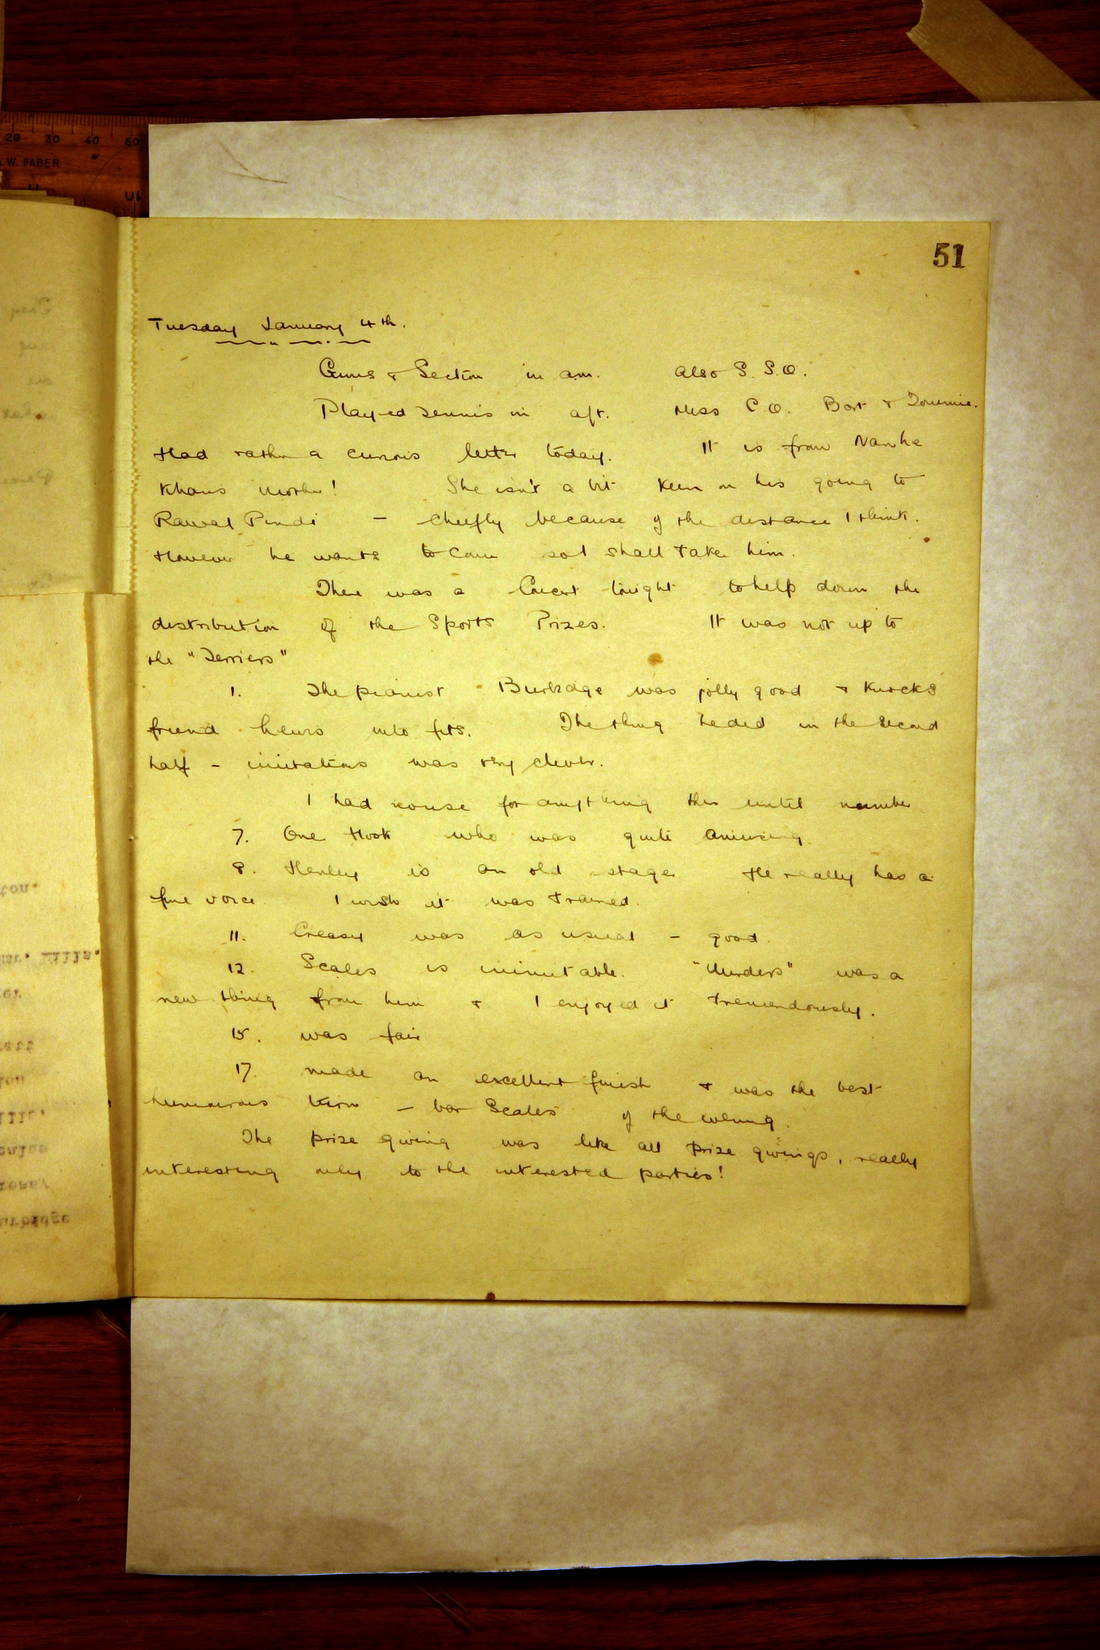 51
Tuesday January 4th.
Guns & Section in am. Also S.S.O.
Played Tennis in aft. Miss C.O. Bart & Tommie.
Had rather a curious letter today. It is from Nanha
Khans mother! She isn't a bit keen on his going to
Rawal Pindi - cheifly because of the distance I think.
However he wants to come so I shall take him.
There was a Concert tonight to help down the
distribution of the Sports Prizes. It was not up to
the "Terriers"
1. The pianist Burbidge was jolly good & knocks
friend into fits. The thing he did in the second
half - imitations was very clever.
I had no use for anything then until number
7. One Hook who was quite amusing.
8. Henley is an old stager He really has a
fine voice. I wish it was trained.
11. Creasy was as usual - good.
12. Scales is inimitable. "Murders" was a
new thing from him & I enjoyed it tremendously.
15. was fair
17. made an excellent finish & was the best
humourous turn - bar Scales of the evening.
The prize giving was like all prize givings, really
interesting only to the interested parties!
20 30 40 50
W. FABER
ton.
Mr. Mills.